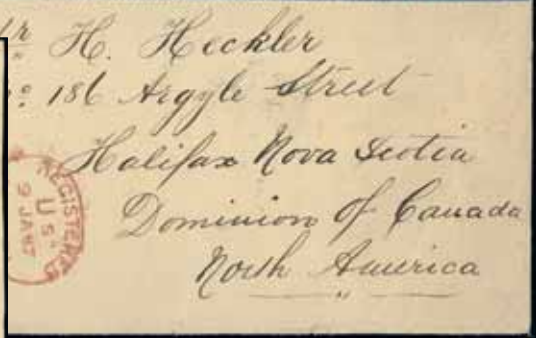 Mr H. Heckler
No 186 Argyle Street
Halifax Nova Scotia
Dominion of Canada
North America
REGISTERED
U S
9 JA 87